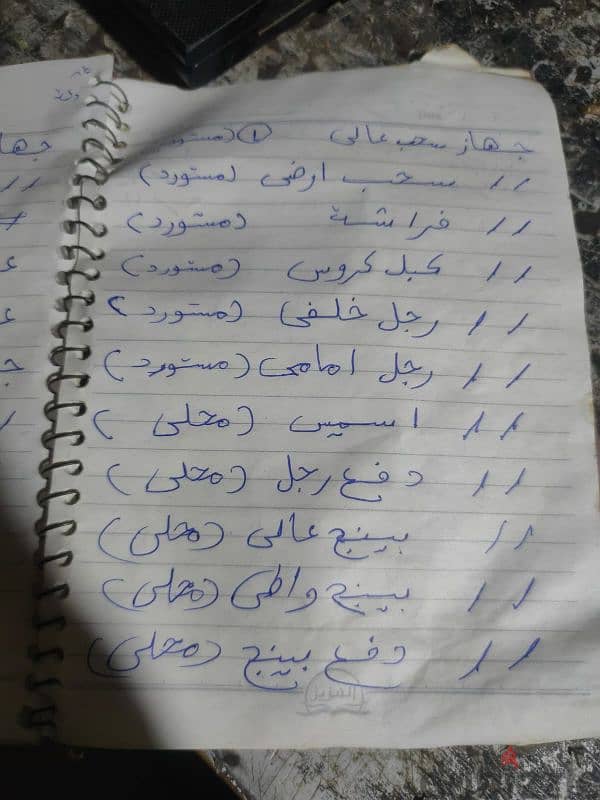 جهاز سحب عالى ① (مستورد)
// سحب ارضى (مستورد)
// فراشة (مستورد)
// كبل كروس (مستورد)
// رجل خلفى (مستورد)
// رجل امامى (مستورد)
// اسميس (محلى)
// دفع رجل (محلى)
// بينج عالى (محلى)
// بينج واطى (محلى)
// دفع بينج (محلى)